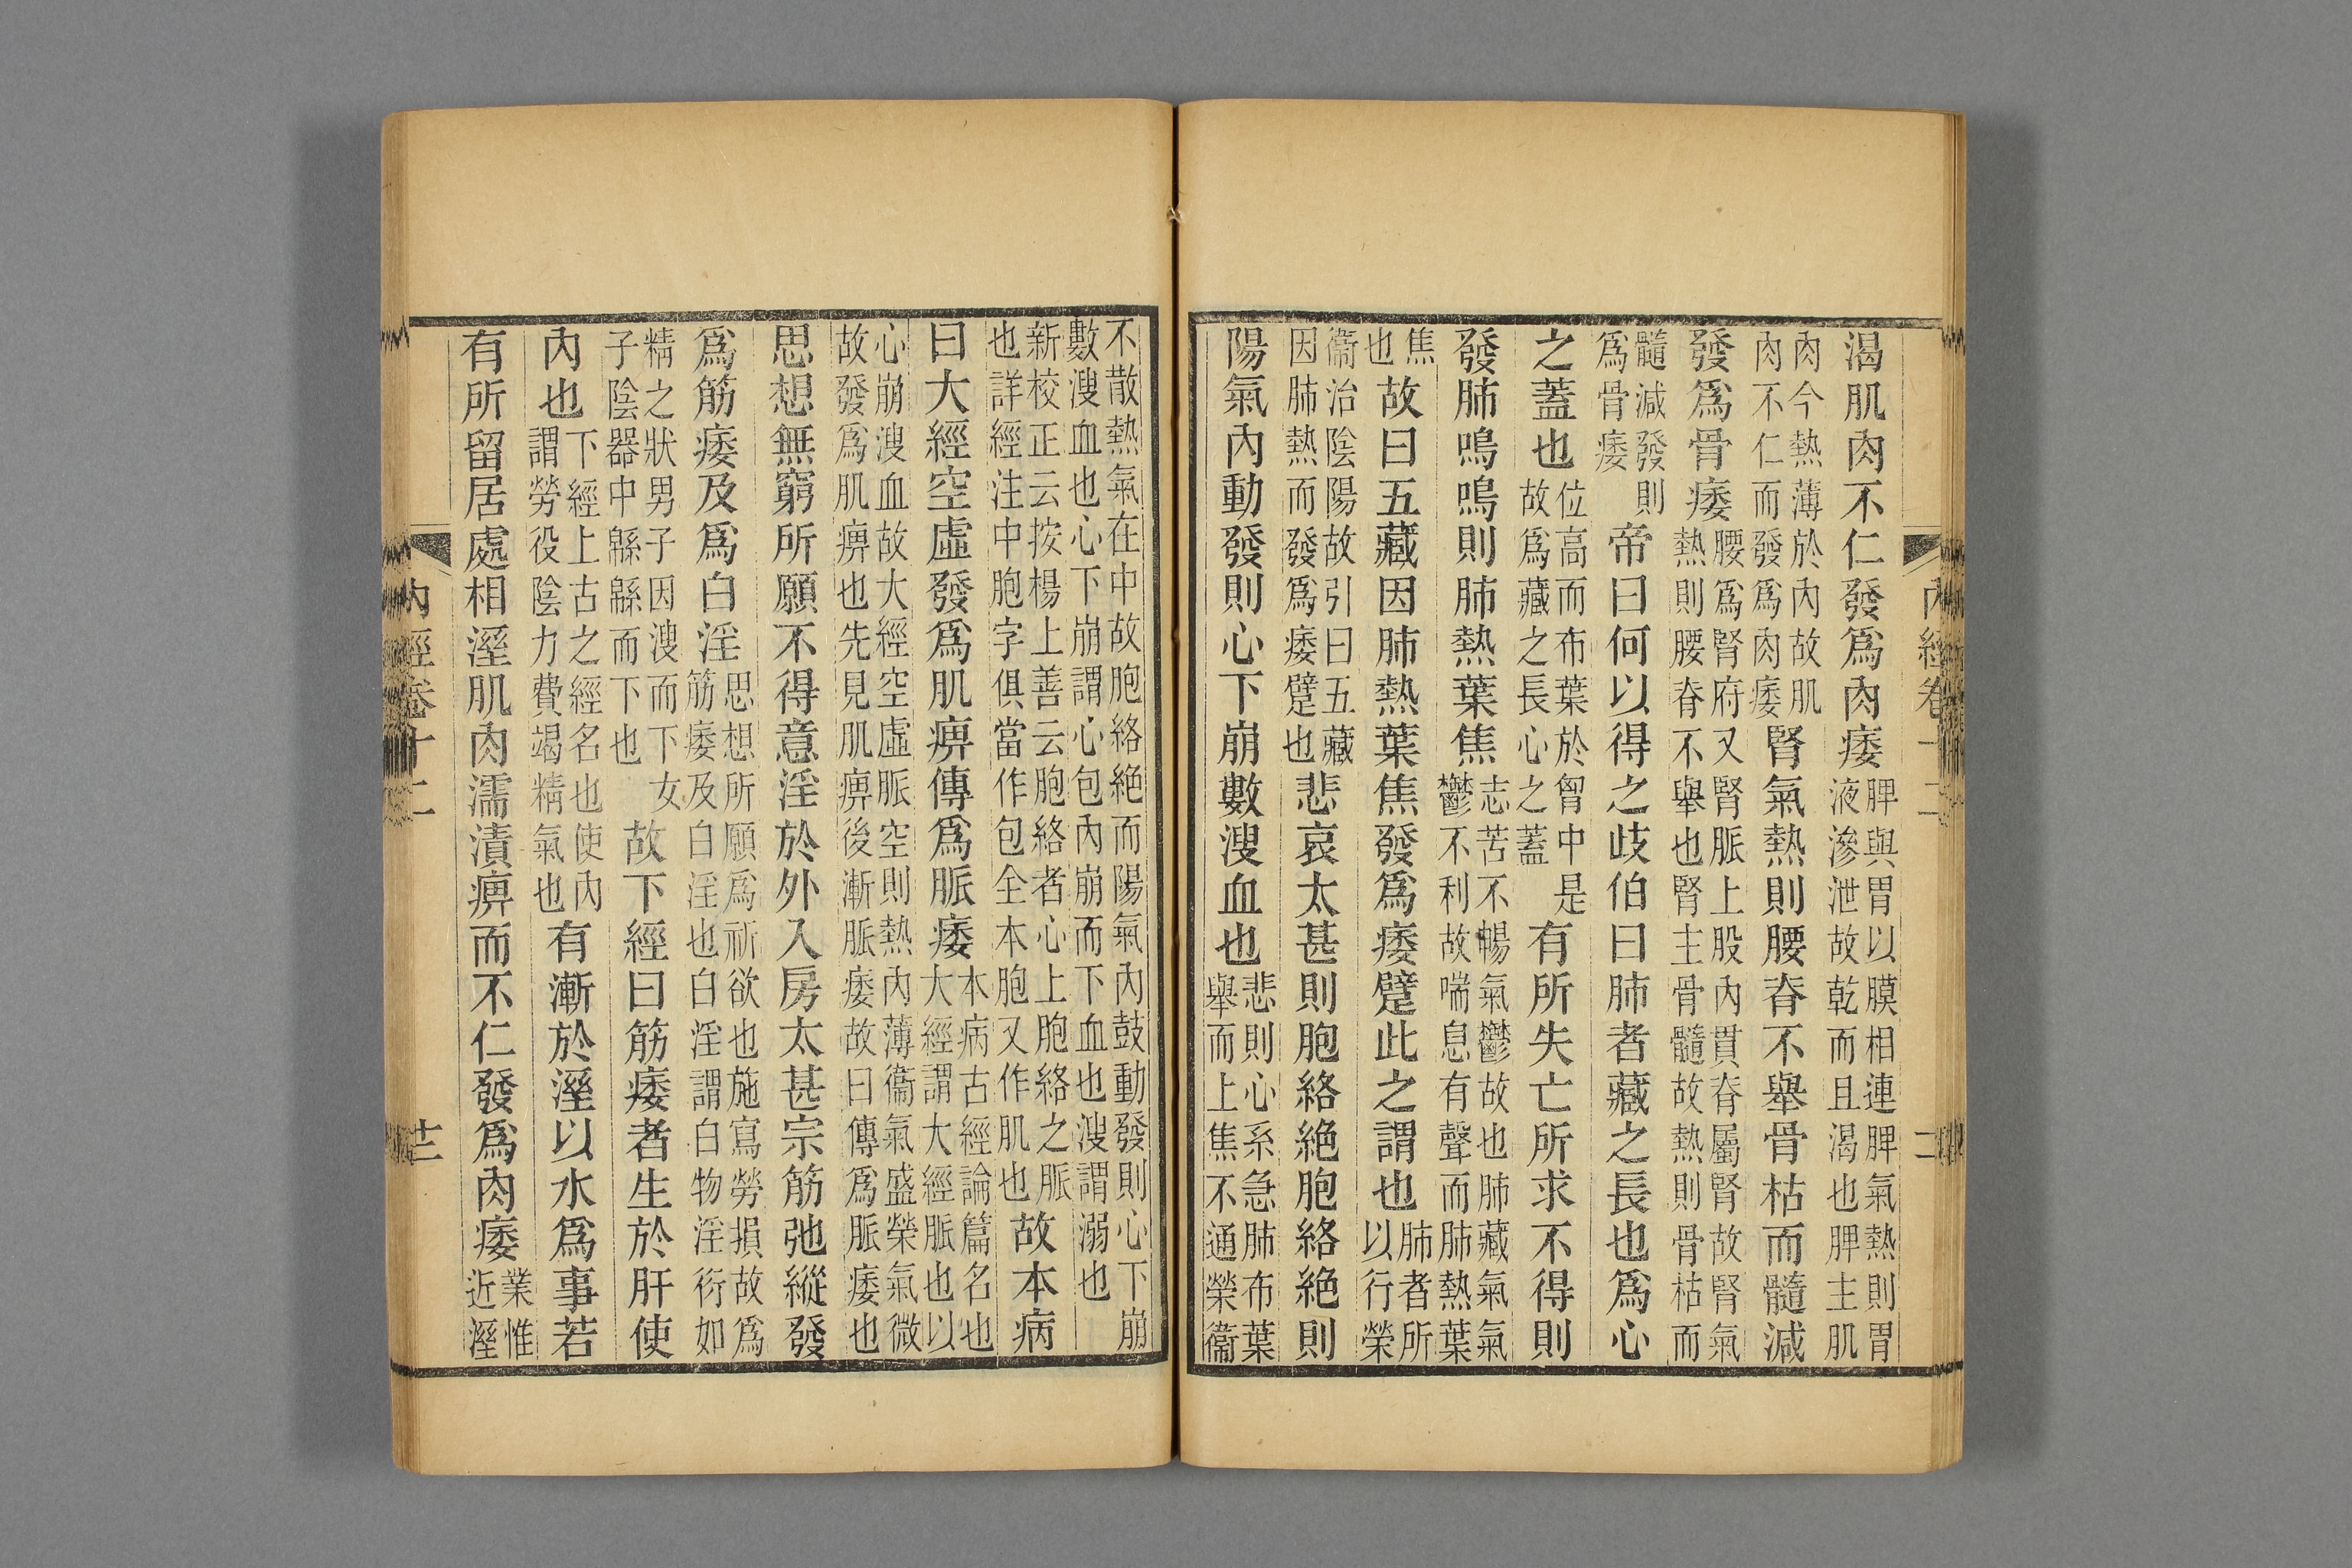 內經卷十二 二
渴肌肉不仁發爲肉痿脾與胃以膜相連脾氣熱則胃液滲泄故乾而且渴也脾主肌
肉今熱薄於內故肌肉不仁而發爲肉痿腎氣熱則腰脊不舉骨枯而髓減
發爲骨痿腰爲腎府又腎脈上股內貫脊屬腎故腎氣熱則腰脊不舉也腎主骨髓故熱則骨枯而
髓減發則爲骨痿帝曰何以得之歧伯曰肺者藏之長也爲心
之蓋也位高而布葉於胷中是故爲藏之長心之蓋有所失亡所求不得則
發肺鳴鳴則肺熱葉焦志苦不暢氣鬱故也肺藏氣氣鬱不利故喘息有聲而肺熱葉
焦也故曰五藏因肺熱葉焦發爲痿躄此之謂也肺者所以行榮
衞治陰陽故引曰五藏因肺熱而發爲痿躄也悲哀太甚則胞絡絕胞絡絕則
陽氣內動發則心下崩數溲血也悲則心系急肺布葉舉而上焦不通榮衞
不散熱氣在中故胞絡絕而陽氣內鼓動發則心下崩數溲血也心下崩謂心包內崩而下血也溲謂溺也
新校正云按楊上善云胞絡者心上胞絡之脈也詳經注中胞字俱當作包全本胞又作肌也故本病
曰大經空虛發爲肌痹傳爲脈痿本病古經論篇名也大經謂大經脈也以
心崩溲血故大經空虛脈空則熱內薄衞氣盛榮氣微故發爲肌痹也先見肌痹後漸脈痿故曰傳爲脈痿也
思想無窮所願不得意淫於外入房太甚宗筋弛縱發
爲筋痿及爲白淫思想所願爲祈欲也施寫勞損故爲筋痿及白淫也白淫謂白物淫衍如
精之狀男子因溲而下女子陰器中緜緜而下也故下經曰筋痿者生於肝使
內也下經上古之經名也使內謂勞役陰力費竭精氣也有漸於溼以水爲事若
有所留居處相溼肌肉濡漬痹而不仁發爲肉痿業惟近溼
內經卷十二 十二